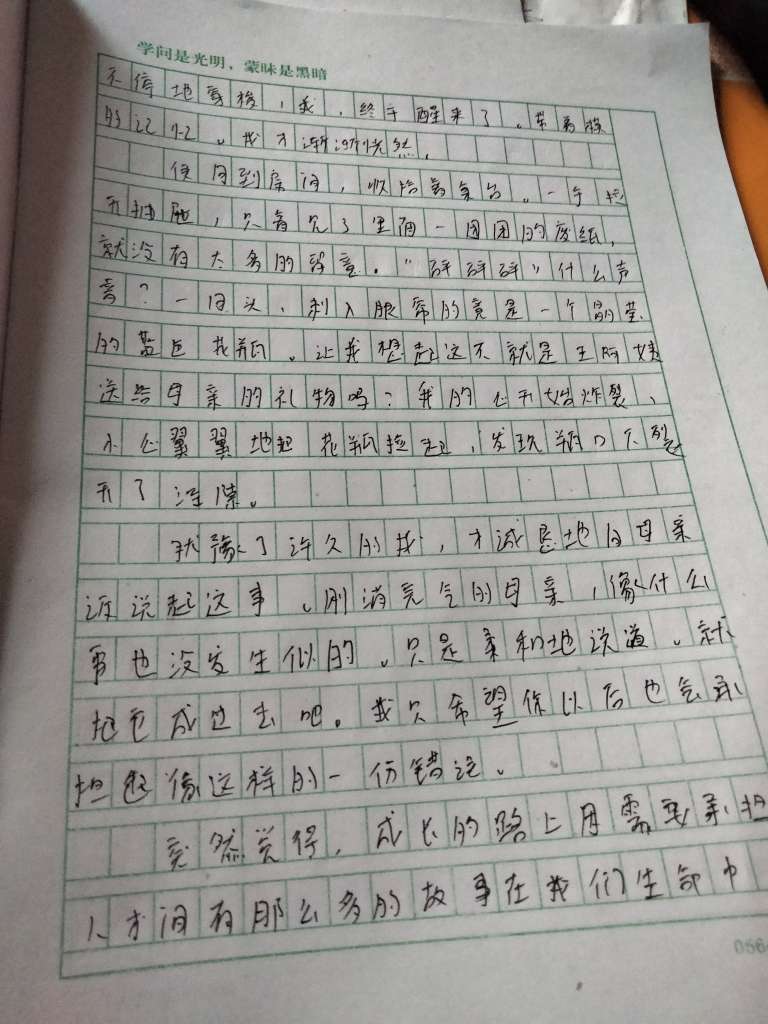 学问是光明，蒙昧是黑暗
不停地穿梭，我，终于醒来了。带着探
的记忆。我才渐渐恍然，
便回到房间，收拾着桌台。一手把
开抽屉，只看见了里面一团团的废纸，
就没有太多的留意。“砰砰砰”什么声
音？一回头，刺入眼帘的竟是一个晶莹
的蓝色花瓶。让我想起这不就是王阿姨
送给母亲的礼物吗？我的心开始炸裂、
小心翼翼地把花瓶捡起，发现瓶口已裂
开了深隙。
犹豫了许久的我，才诚恳地向母亲
诉说起这事。刚消完气的母亲，像什么
事也没发生似的。只是柔和地说道。就
把它成过去吧。我只希望你以后也会承
担起像这样的一份错误。
突然觉得，成长的路上用需要承担
人才间有那么多的故事在我们生命中
056